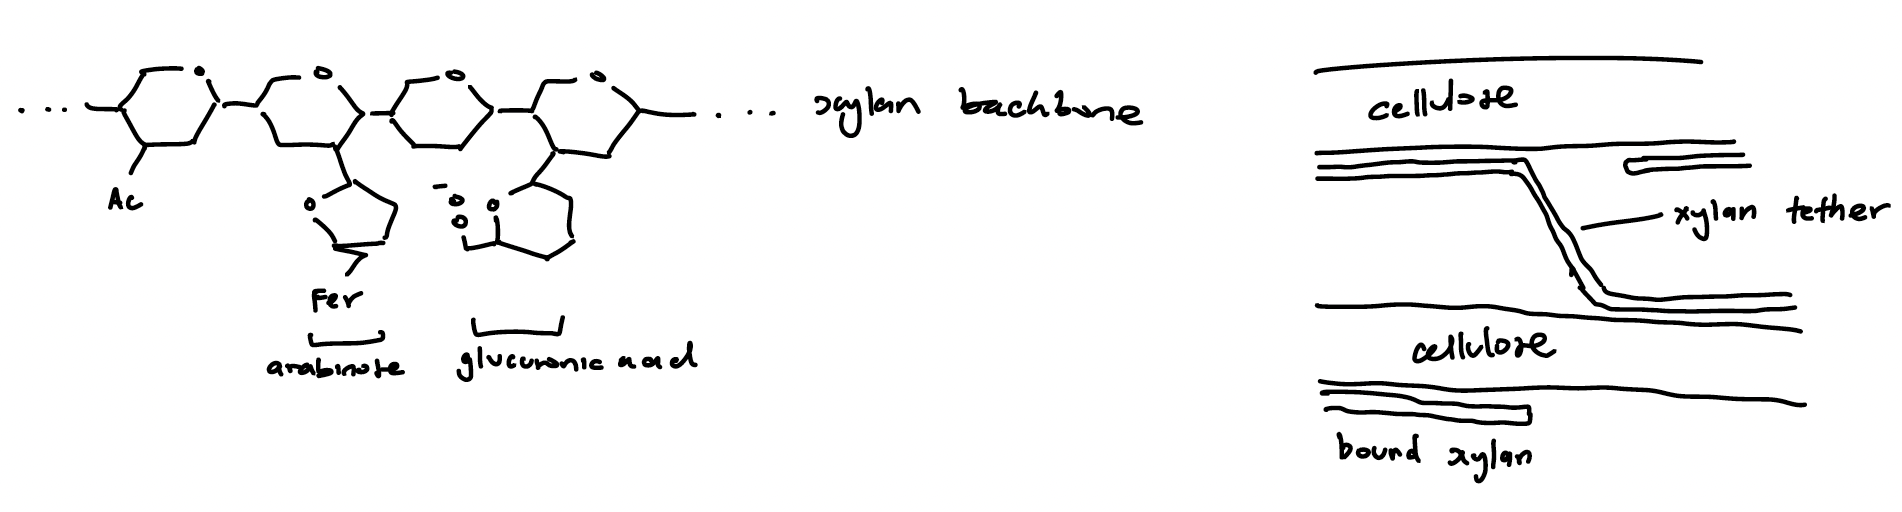 ... O O O O ... xylan backbone
Ac
O
Fer
arabinose
-
O
O O
glucuronic acid
cellulose
xylan tether
cellulose
bound xylan